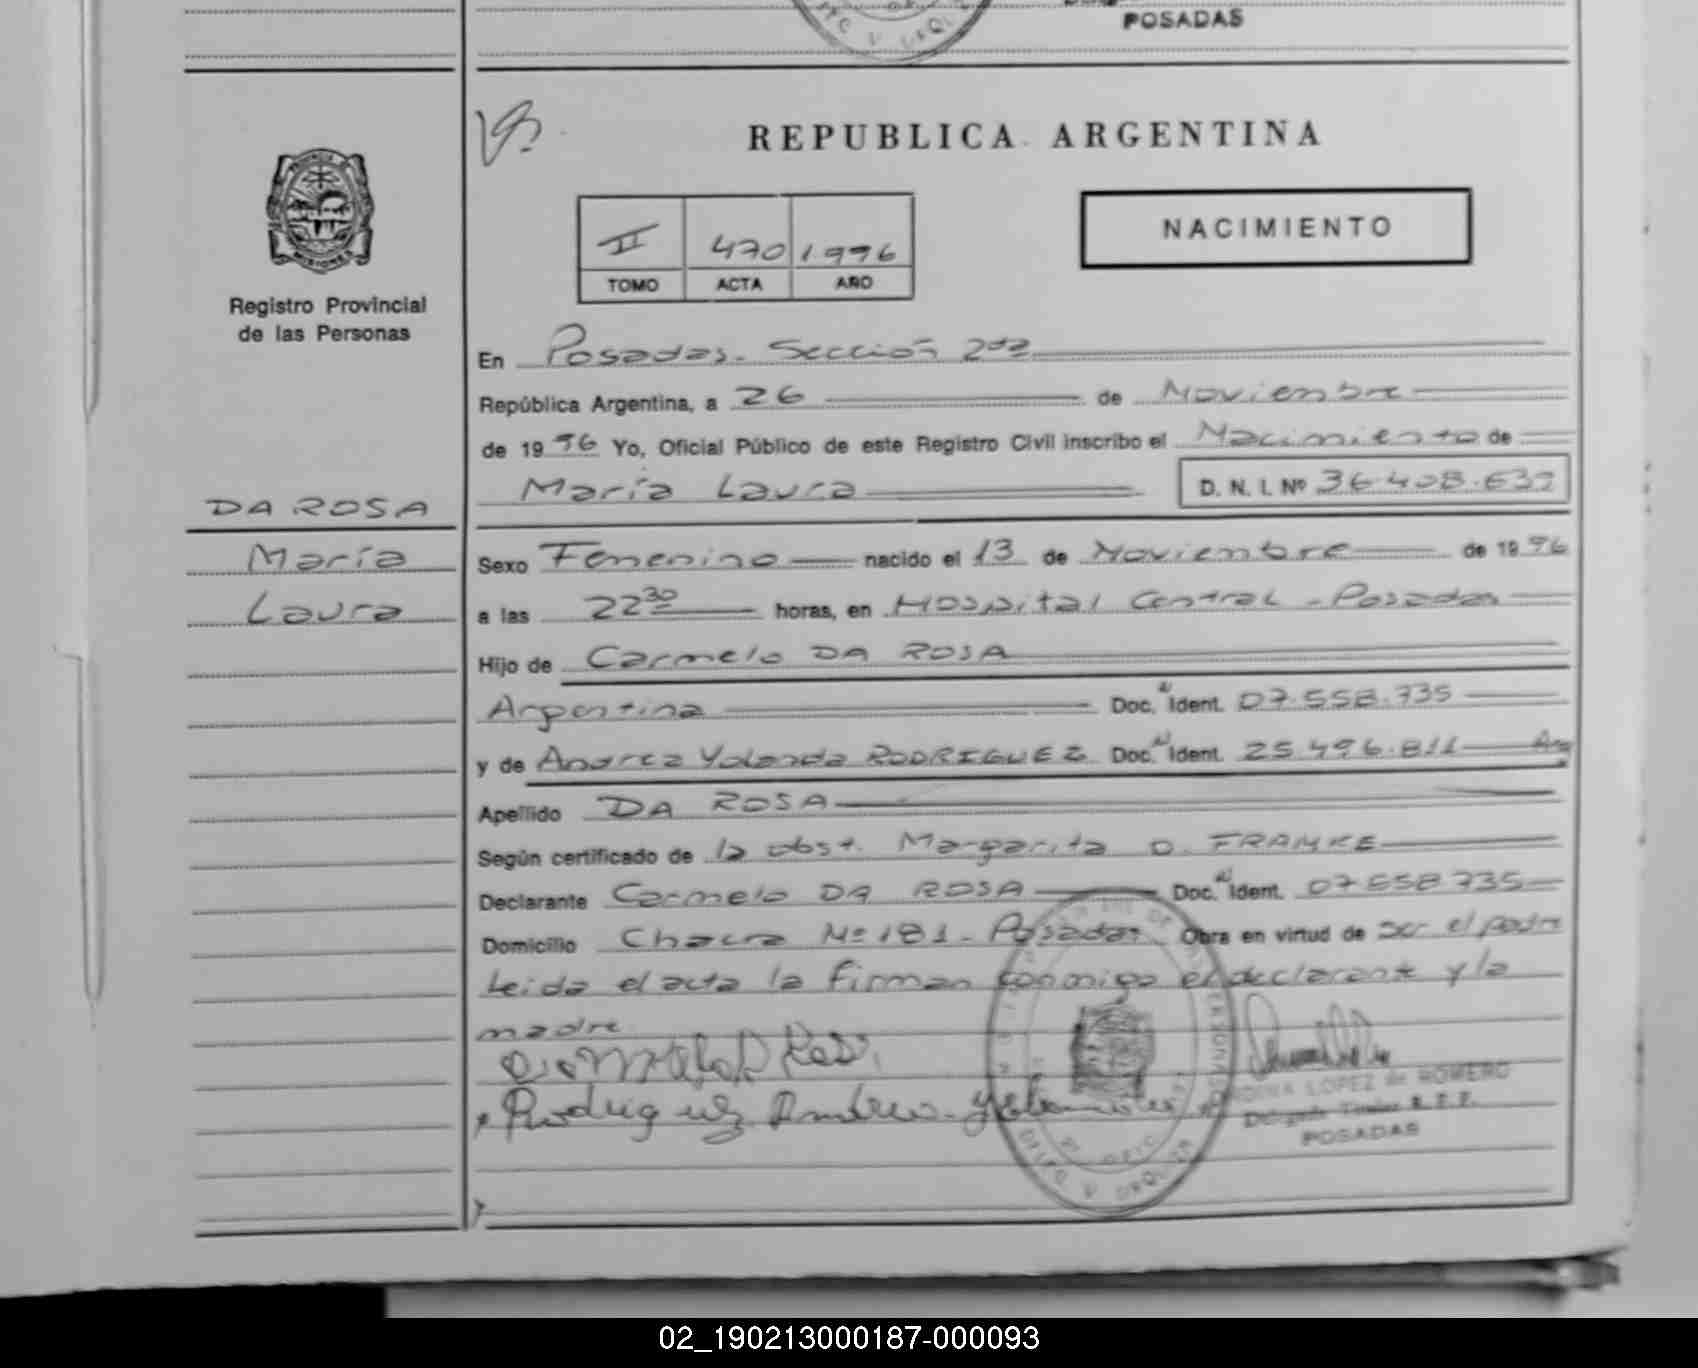 POSADAS
REPUBLICA ARGENTINA
II 470 1996
TOMO ACTA AÑO
NACIMIENTO
MISIONES
Registro Provincial
de las Personas
En Posadas. Sección 2da
República Argentina, a 26 de Noviembre
de 1996 Yo, Oficial Público de este Registro Civil inscribo el Nacimiento de
María Laura D. N. I. Nº 36.408.632
DA ROSA
María
Laura
Sexo Femenino nacido el 13 de Noviembre de 1996
a las 22 30 horas, en Hospital Central - Posadas
Hijo de Carmelo DA ROSA
Argentina Doc. Ident. 07.558.735
y de Andrea Yolanda RODRIGUEZ Doc. Ident. 25.496.811 Arg
Apellido DA ROSA
Según certificado de la obst. Margarita O. FRANKE
Declarante Carmelo DA ROSA Doc. Ident. 07.558.735
Domicilio Chacra Nº 181 - Posadas Obra en virtud de ser el padre
Leida el acta la firman conmigo el declarante y la
madre
Rodriguez Andrea Yolanda
LOPEZ de ROMERO
Delegada Titular R. P. P.
POSADAS
02_190213000187-000093